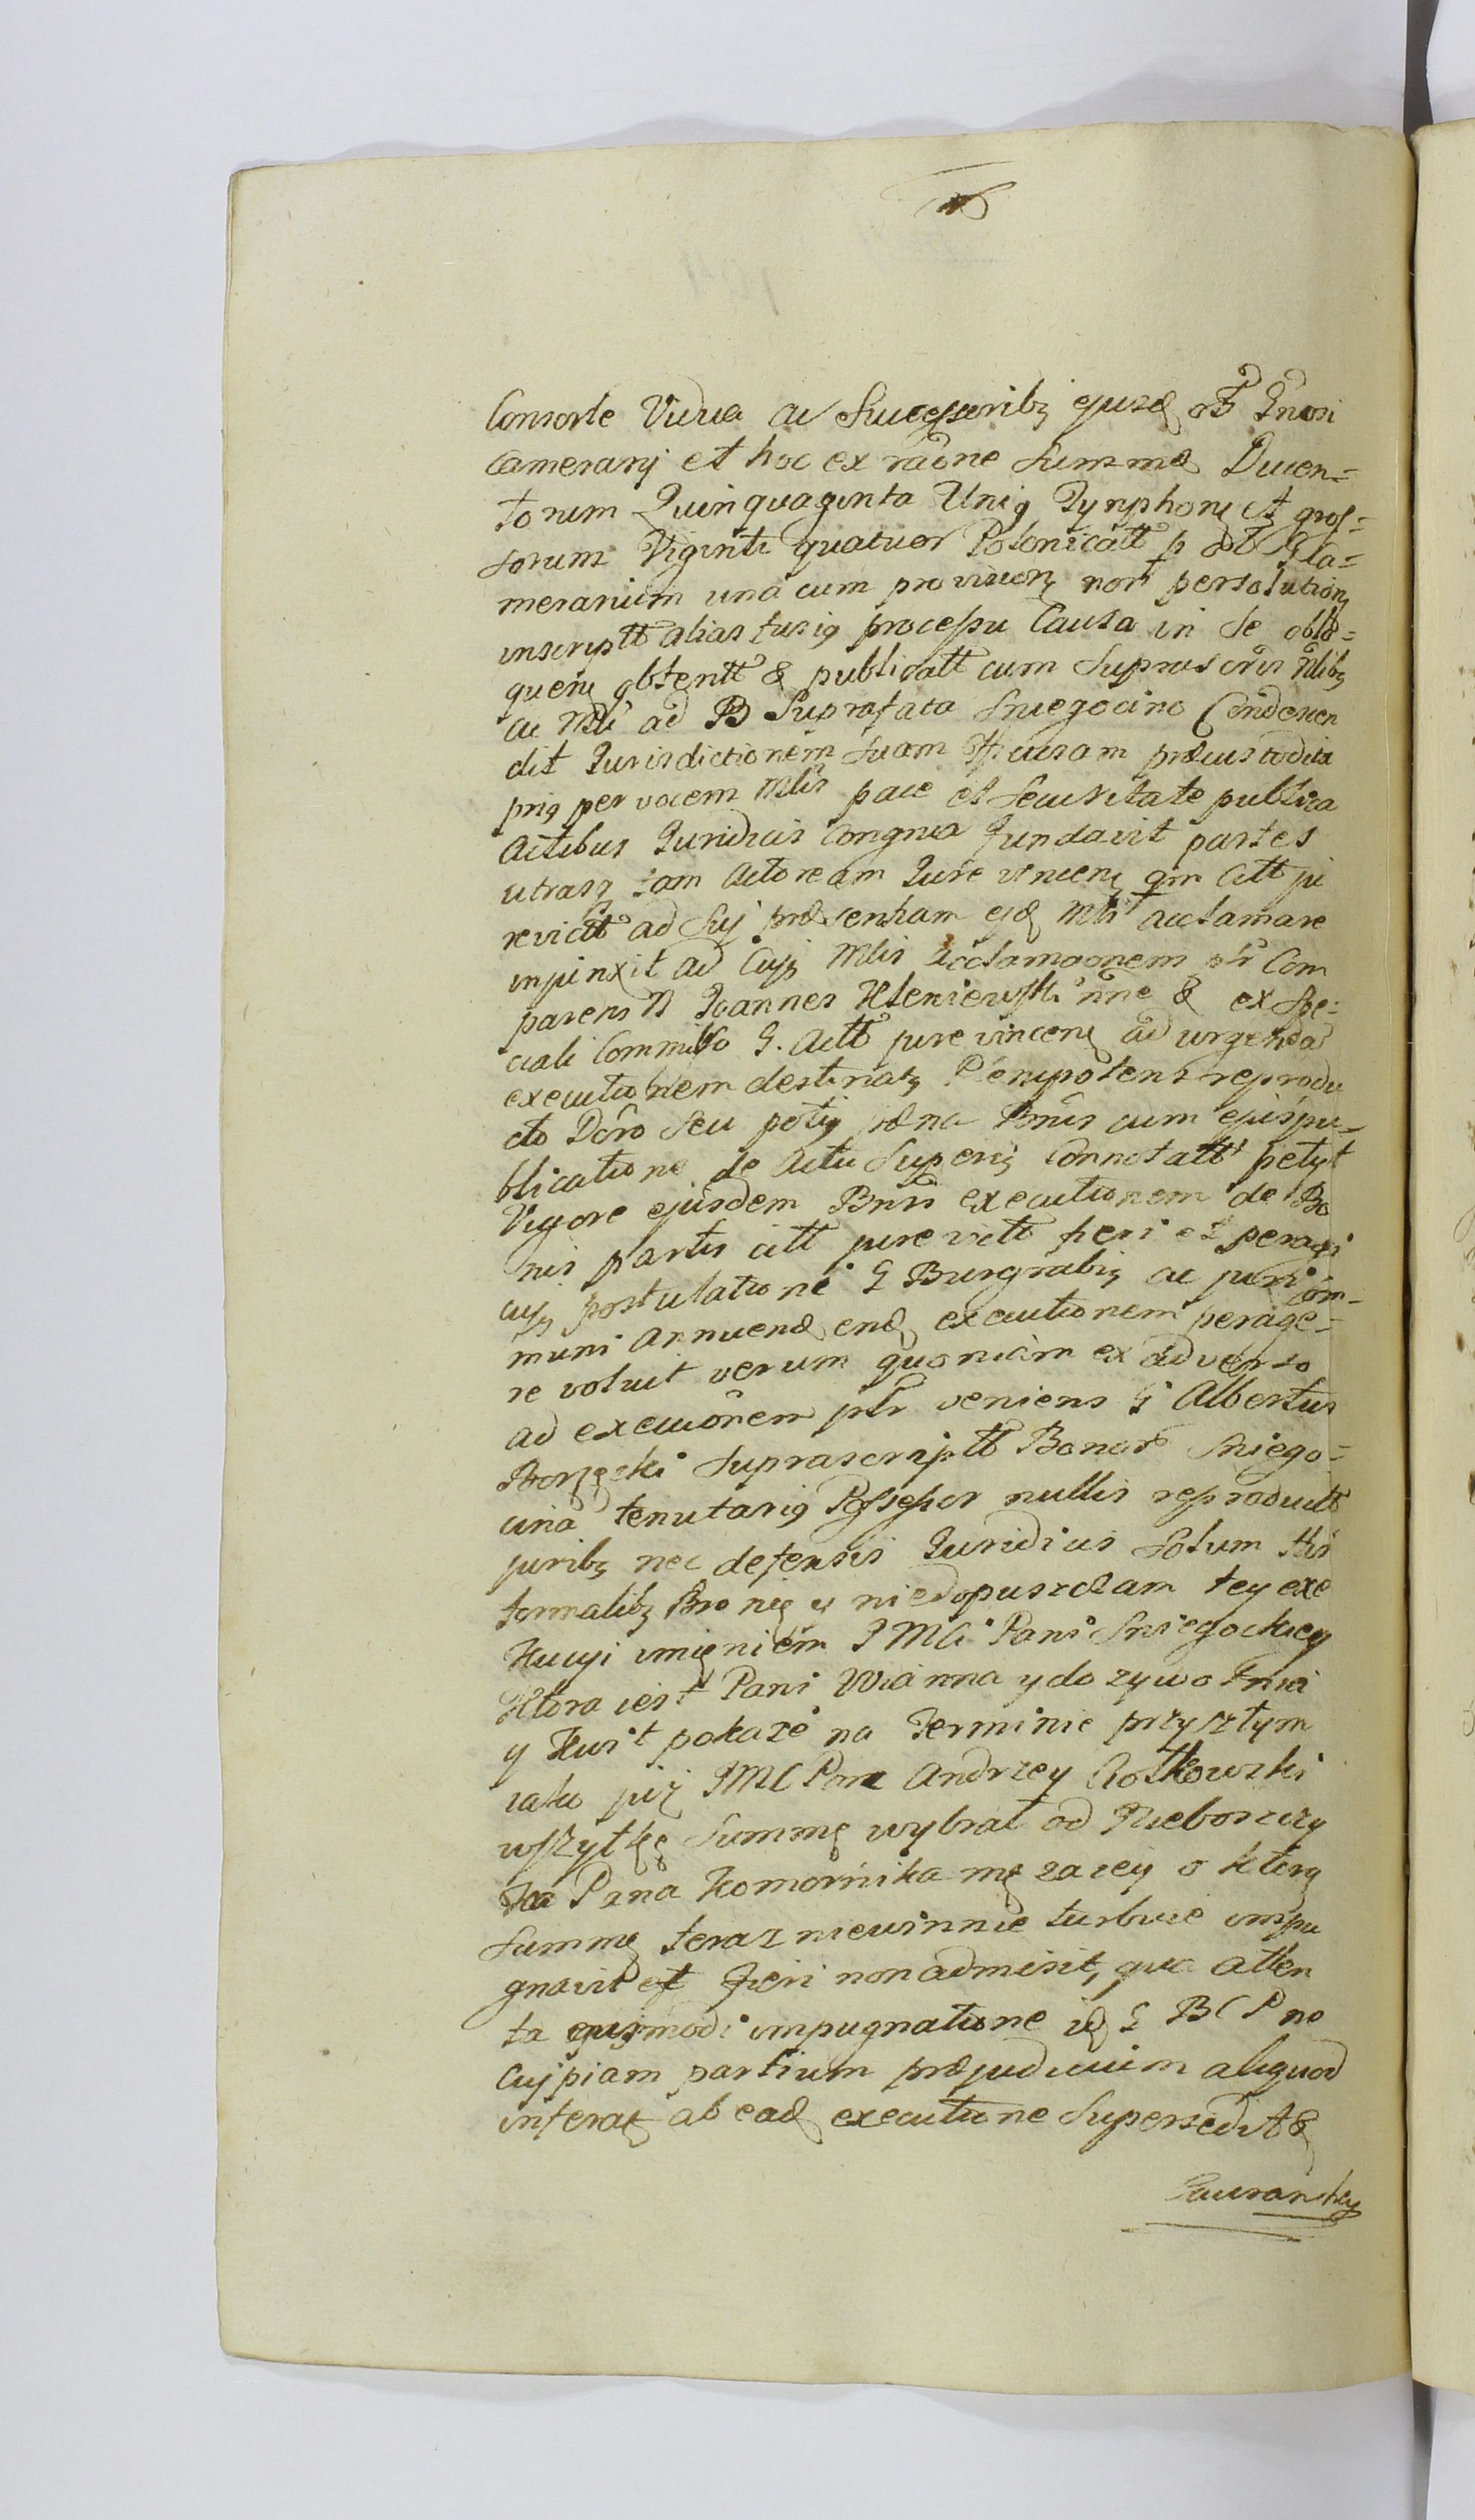 Consorte Vidua ac Successoribz ejusd olt Gnosi
Camerarij et hoc ex raône Summæ Ducen=
torum Quinquaginta Uniq Tynphonę et gros=
sorum Viginti quatuor Polonicatt p olt G Ca=
merarium una cum provisionę non persolutionę
inscriptt alias fusiq processu Causa in se oblo=
quenę obtentt & publicatt cum Supra scris Nlibz
ac Mli ad B Suprafata Sniegocino Condescen
dit Jurisdictionem suam Offciosam præcustodita
priq per vocem Mlis pace et Securitate publica
Actibus Juridicis Congrua fundavit partes
utrasq tam Actoream Jure vincenę qm Citt ju
revictt ad Suj præsentiam ejd Mli acclamare
injunxit ad Cujq Mlis acclamaonem plr Com
parens N Joannes Kleniewski nne & ex Spe=
ciali Commisso G. Actt jure vincenę ad urgenda
executionem destinatę Plenipotens reprodu
cto Dcro seu potiq pæna Bnis cum ejus pu=
blicatione de Actu Superiq Connotatt petyt
Vigore ejusdem Bnis executionem de Bo
nis partis citt jure victt fieri et peragi
cujq postulationi G Burgrabiq ac juri com=
muni annuend, end, executionem perage=
re voluit verum quoniam ex adverso
ad execuônem plr veniens G Albertus
Borzęcki Suprascriptt Bonor Sniego=
cina tenutariq Possessor nullis reproductt
juribz nec defensis Juridicis Solum his
formalibz Bronię y niedopuszczam tey exe
kucyi imięniem JMCi Pani Sniegockiey
Ktora iest Pani Wianna y dozywotnia
y kwit pokaże na Terminie przyszłym
iako już JMC Pan Andrzey Rostkowski
wszytkę Summę wybrał od Nieboszczy
ka Pana Komornika męża iey o ktorą
Summę teraz niewinnie turbuie impu
gnavit et fieri non admisit, qua atten
ta ejusmodi impugnatione id, G B C P ne
Cujpiam partium præjudicium aliquod
inferat, ab ead, executione Supersedit &